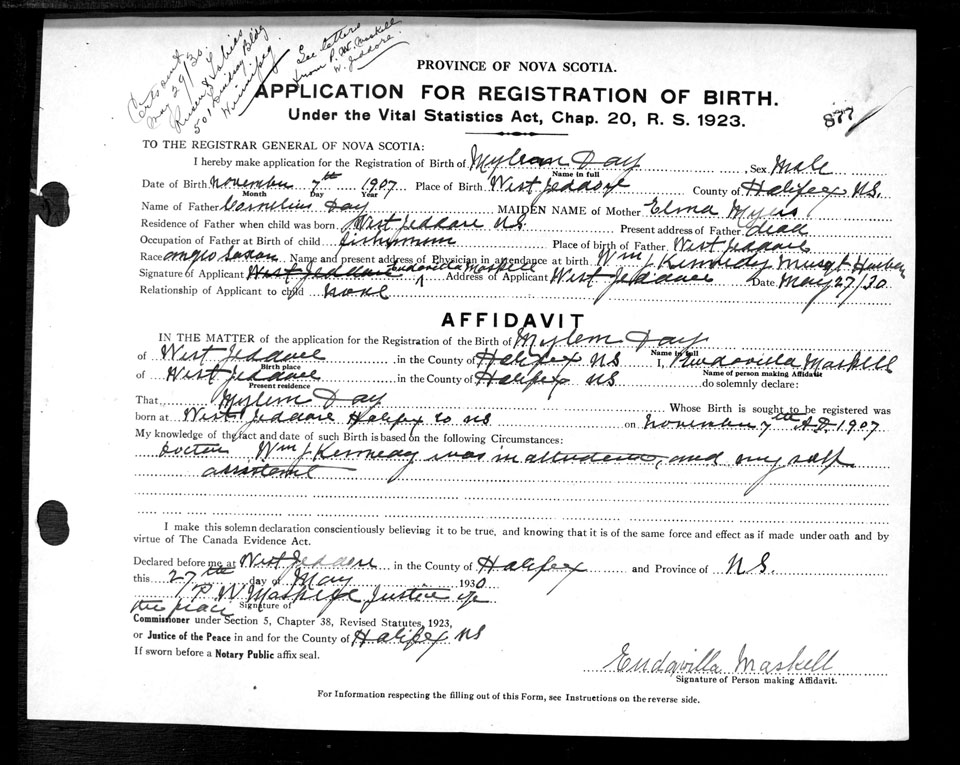 Cert sent
May 29/30.
501 Lindsay Bldg
Winnipeg
See letters
from P. W. Maskell
W. Jeddore.
PROVINCE OF NOVA SCOTIA.
APPLICATION FOR REGISTRATION OF BIRTH.
Under the Vital Statistics Act, Chap. 20, R. S. 1923.
877
TO THE REGISTRAR GENERAL OF NOVA SCOTIA:
I hereby make application for the Registration of Birth of Mylem Day, Sex Male
Name in full
Date of Birth November 7th 1907 Place of Birth West Jeddore County of Halifax N.S.
Month Day Year
Name of Father Cornelius Day MAIDEN NAME of Mother Elma Myers
Residence of Father when child was born West Jeddore N.S. Present address of Father dead
Occupation of Father at Birth of child fisherman Place of birth of Father West Jeddore
Race anglo Saxon Name and present address of Physician in attendance at birth Wm J Kennedy Musqt Harbor
Signature of Applicant West Jeddore Eudavilla Maskell Address of Applicant West Jeddore Date May 27/30
Relationship of Applicant to child none
AFFIDAVIT
IN THE MATTER of the application for the Registration of the Birth of Mylem Day
Name in full
of West Jeddore, in the County of Halifax NS I, Eudavilla Maskell
Birth place Name of person making Affidavit
of West Jeddore in the County of Halifax NS do solemnly declare:
Present residence
That Mylem Day Whose Birth is sought to be registered was
born at West Jeddore Halifax Co NS on November 7th A.D. 1907
My knowledge of the fact and date of such Birth is based on the following Circumstances:
Docter Wm J Kennedy was in attendens, and my self
assistent
I make this solemn declaration conscientiously believing it to be true, and knowing that it is of the same force and effect as if made under oath and by
virtue of The Canada Evidence Act.
Declared before me at West Jeddore in the County of Halifax and Province of N.S.
this 27th day of May 1930
P W Maskell Justice of
the peace Signature of
Commissioner under Section 5, Chapter 38, Revised Statutes, 1923,
or Justice of the Peace in and for the County of Halifax NS
If sworn before a Notary Public affix seal.
Eudavilla Maskell
Signature of Person making Affidavit.
For Information respecting the filling out of this Form, see Instructions on the reverse side.